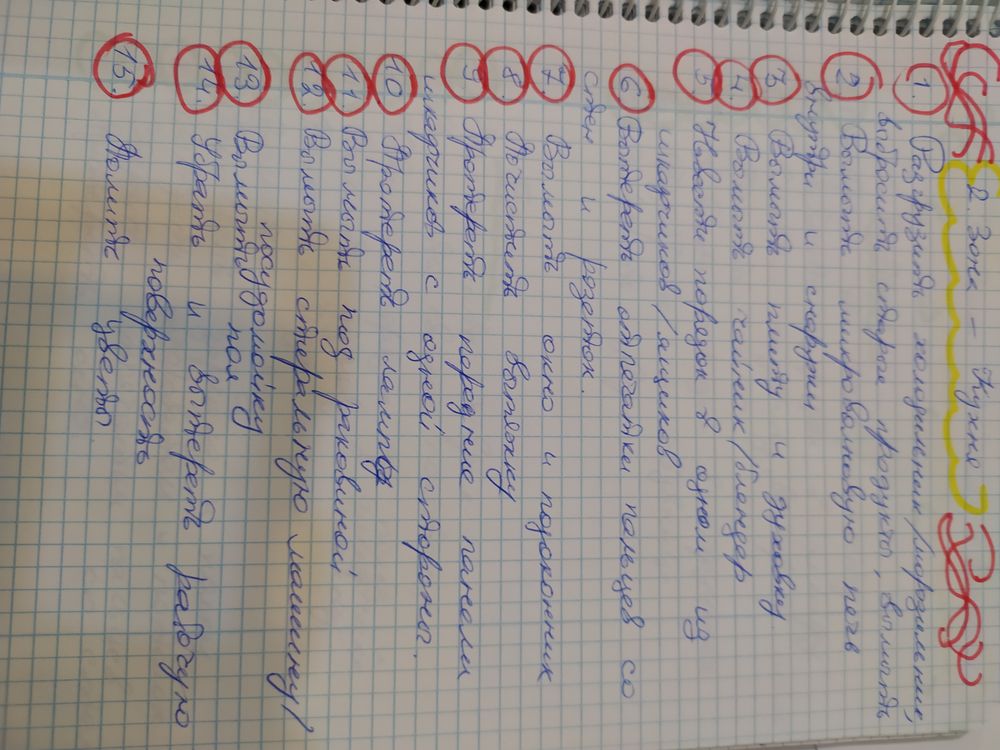 2. Зона - Кухня
1. Разгрузить холодильник/морозильник,
выбросить старые продукты, вымыть
2. Вымыть микроволновую печь
внутри и снаружи
3. Вымыть плиту и духовку.
4. Вымыть чайник/блендер
5. Навести порядок в одном из
шкафчиков/ящиков
6. Вытереть отпечатки пальцев со
стен и розеток.
7. Вымыть окно и подоконник
8. Почистить вытяжку
9. Протереть передние панели
шкафчиков с одной стороны.
10 Протереть лампы
11 Вымыть под раковиной
12 Вымыть стиральную машинку/
посудомойку
13 Вымыть пол
14. Убрать и вытереть рабочую
поверхность
15. Полить цветы